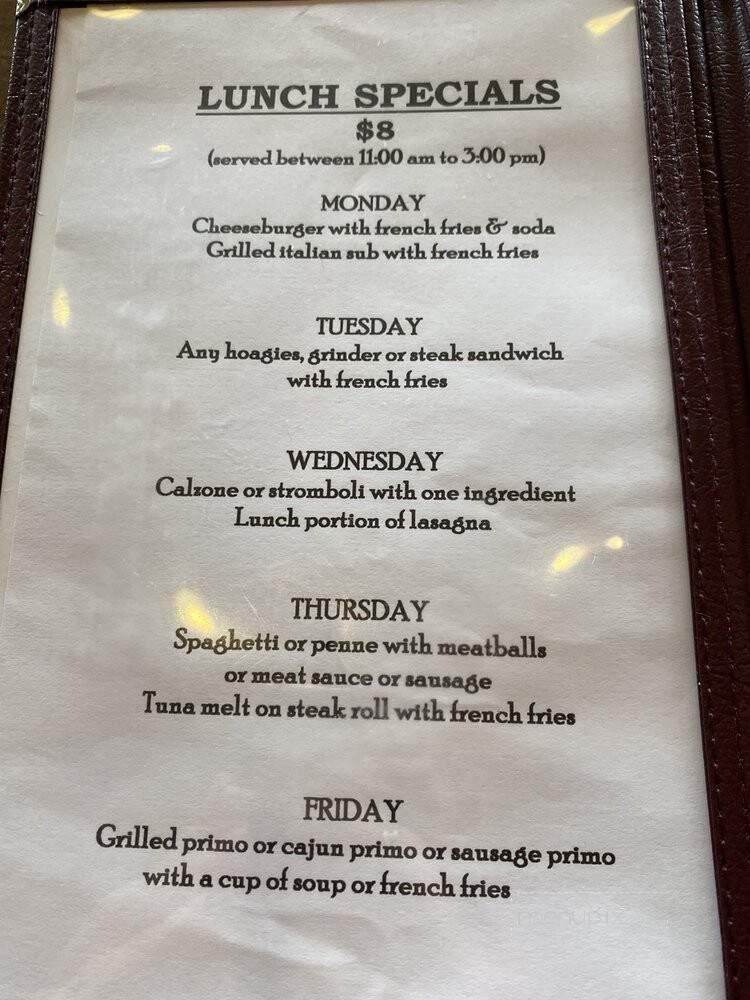 LUNCH SPECIALS
$8
(served between 11:00 am to 3:00 pm)
MONDAY
Cheeseburger with french fries & soda
Grilled italian sub with french fries
TUESDAY
Any hoagies, grinder or steak sandwich
with french fries
WEDNESDAY
Calzone or stromboli with one ingredient
Lunch portion of lasagna
THURSDAY
Spaghetti or penne with meatballs
or meat sauce or sausage
Tuna melt on steak roll with french fries
FRIDAY
Grilled primo or cajun primo or sausage primo
with a cup of soup or french fries